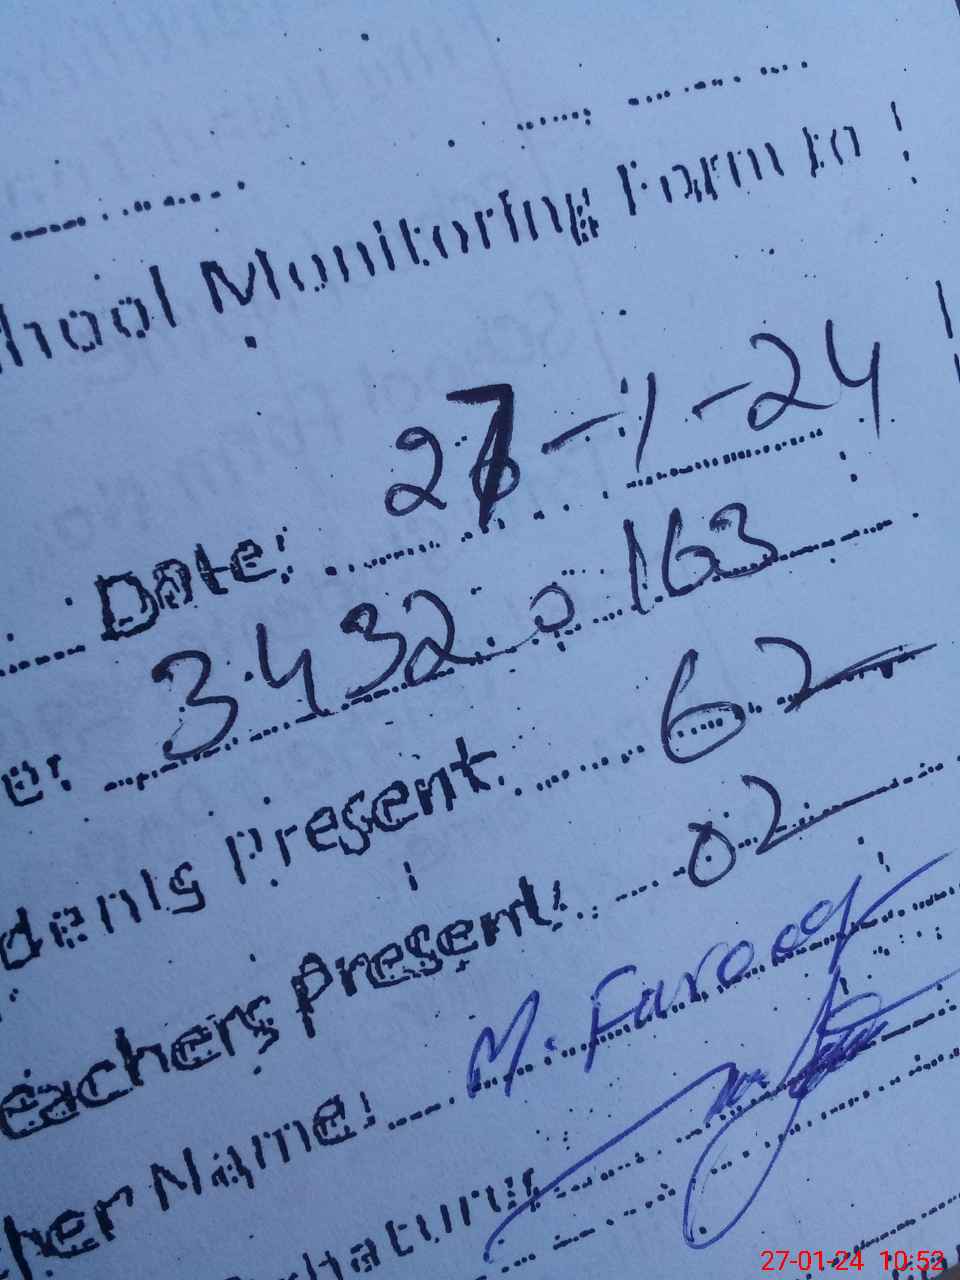 hool Monitoring Form fo
Date: 27-1-24
e: 3.432.0163
dents Present: 62
eachers Present: 02
cher Name: M. Farooq
nature:
27-01-24 10:52